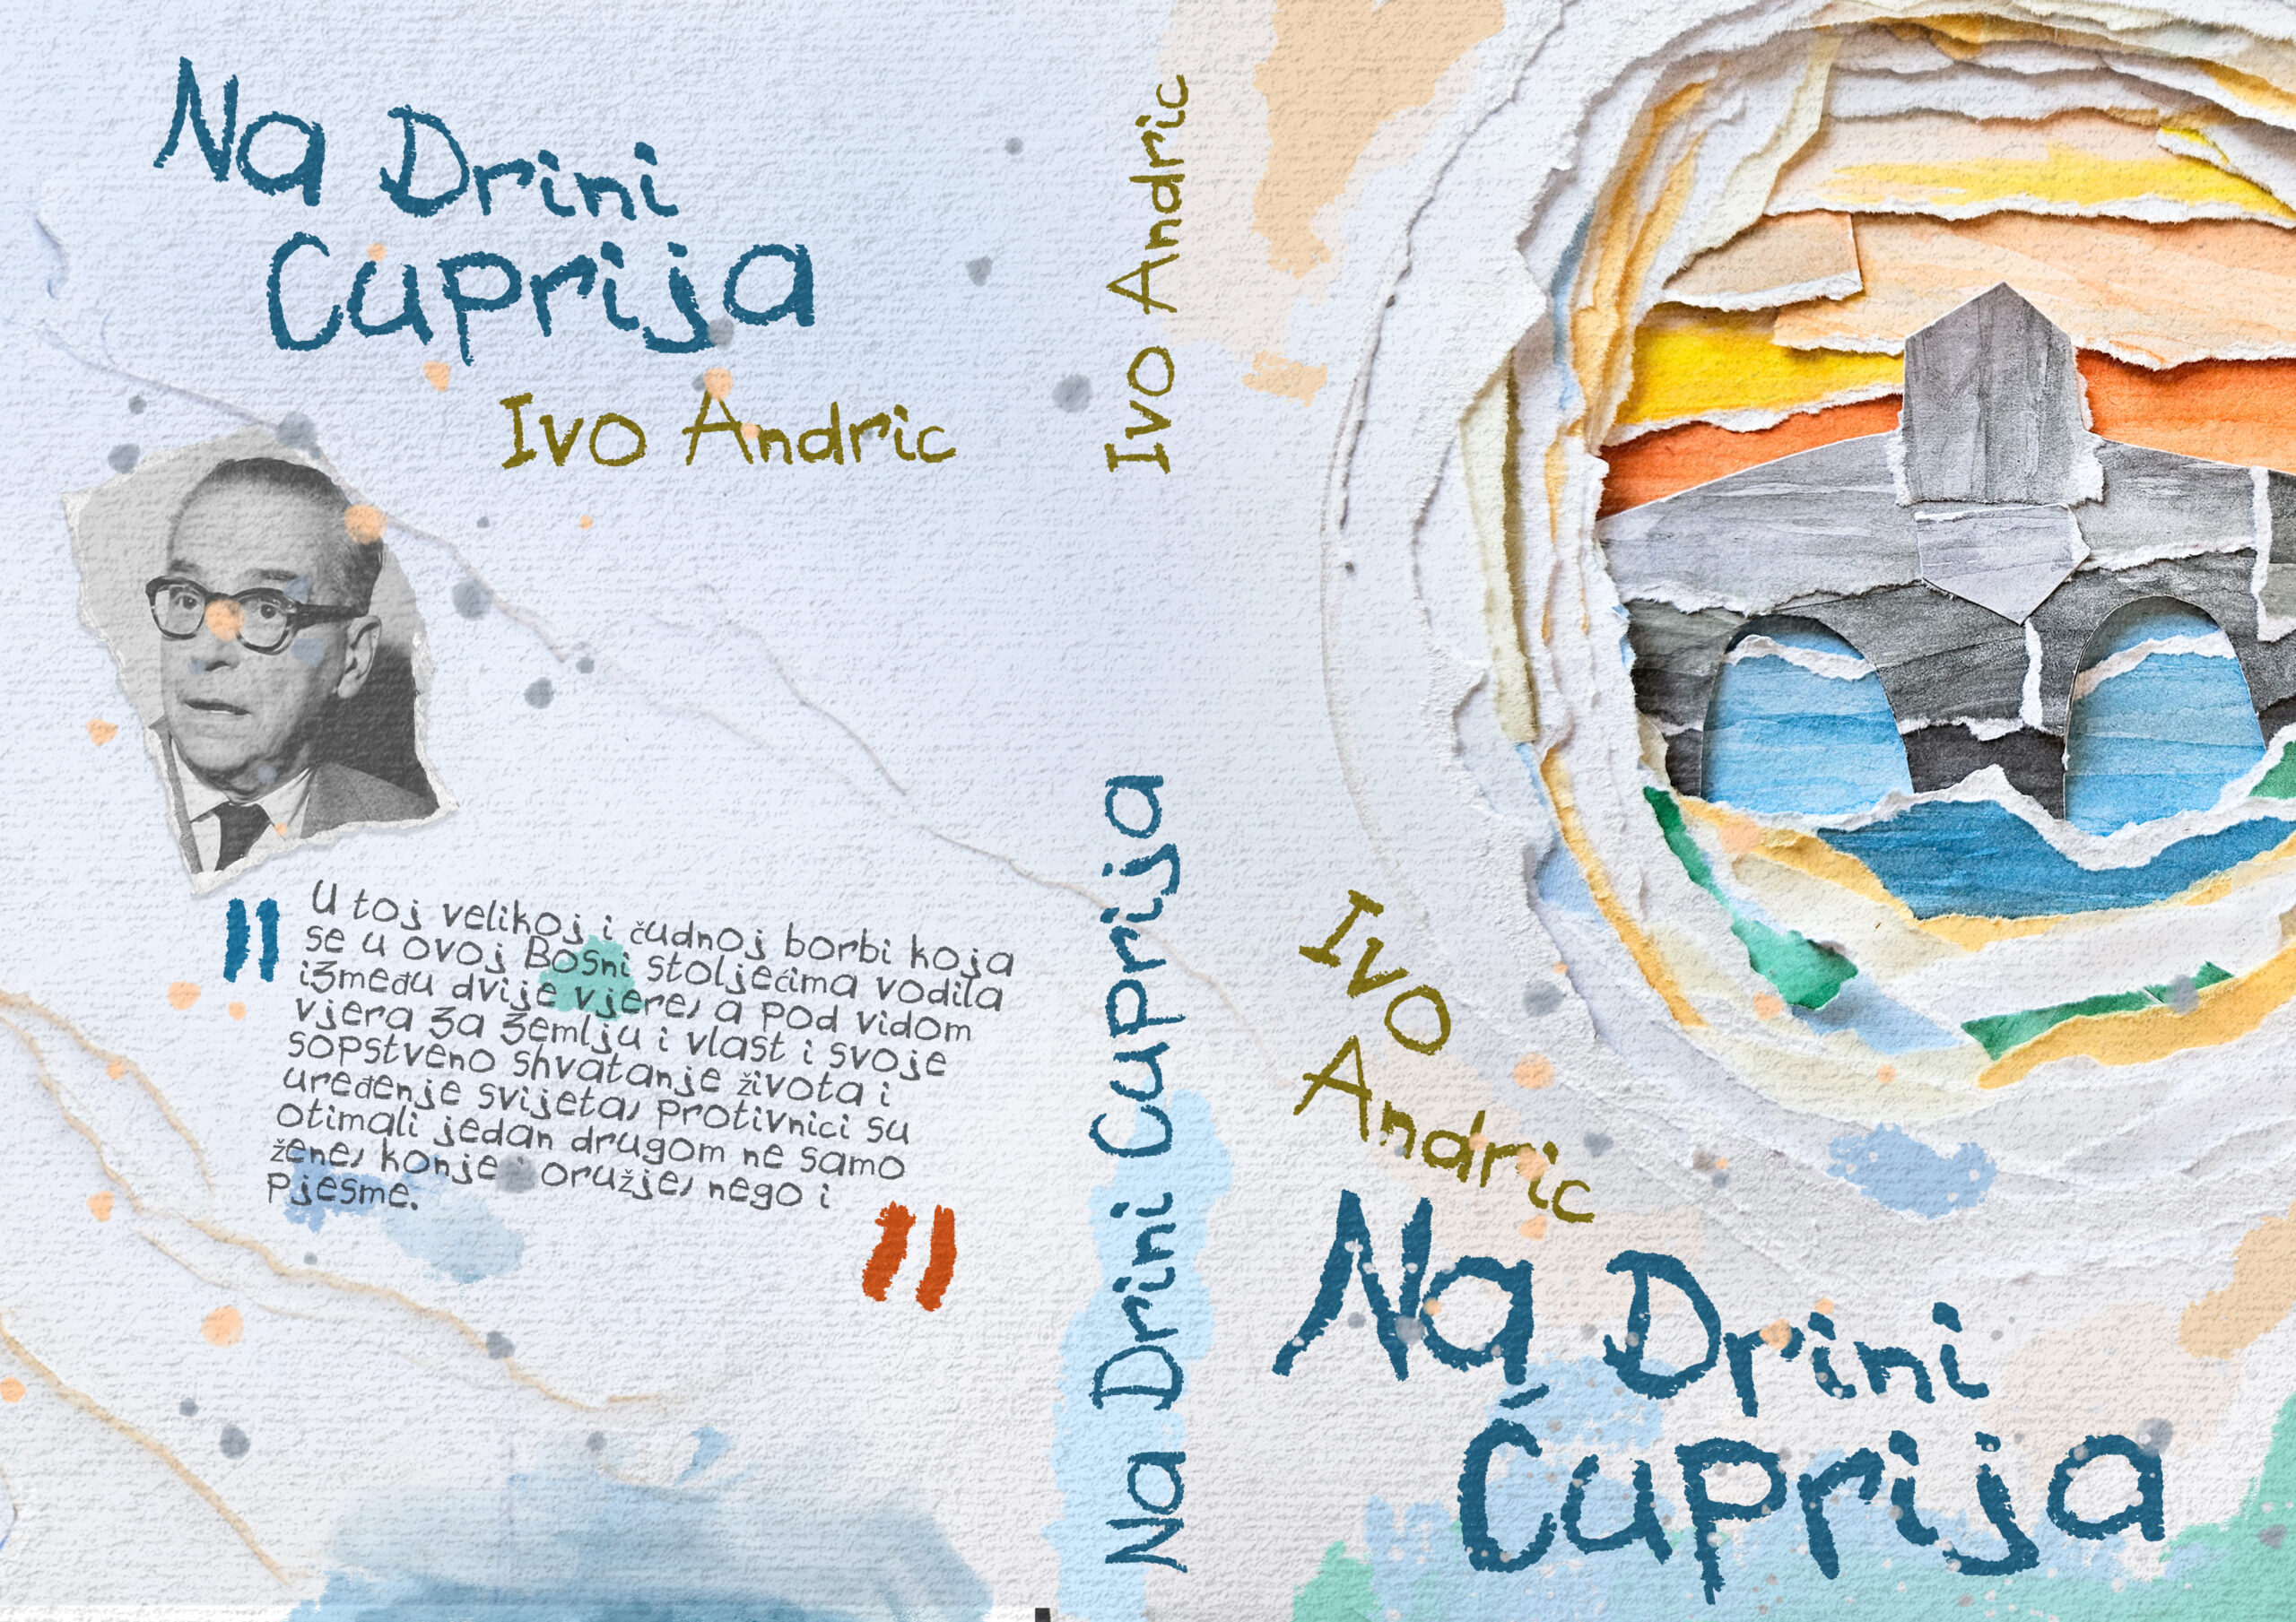 Na Drini
Cuprija
Ivo Andric
" U toj velikoj i čudnoj borbi koja
se u ovoj Bosni stoljećima vodila
između dvije vjere, a pod vidom
vjera za zemlju i vlast i svoje
sopstveno shvatanje života i
uređenje svijeta, protivnici su
otimali jedan drugom ne samo
žene, konje i oružje, nego i
pjesme. "
Na Drini Cuprija
Ivo Andric
Ivo
Andric
Na Drini
Ćuprija